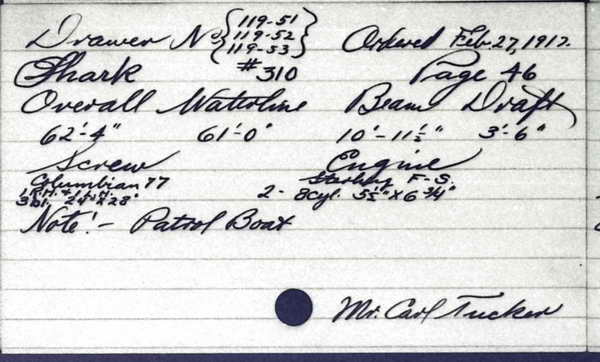 Drawer No {119-51 119-52 119-53} Ordered Feb. 27, 1917.
Shark #310 Page 46
Overall Waterline Beam Draft
62'-4" 61'-0" 10'-11½" 3'-6"
Screw Engine
Columbian 77 Sterling F-S.
1 R.H. & 1 L.H. 2- 8cyl. 5½" x 6¾"
3 bl. 24" x 28"
Note:- Patrol Boat
Mr. Carl Tucker